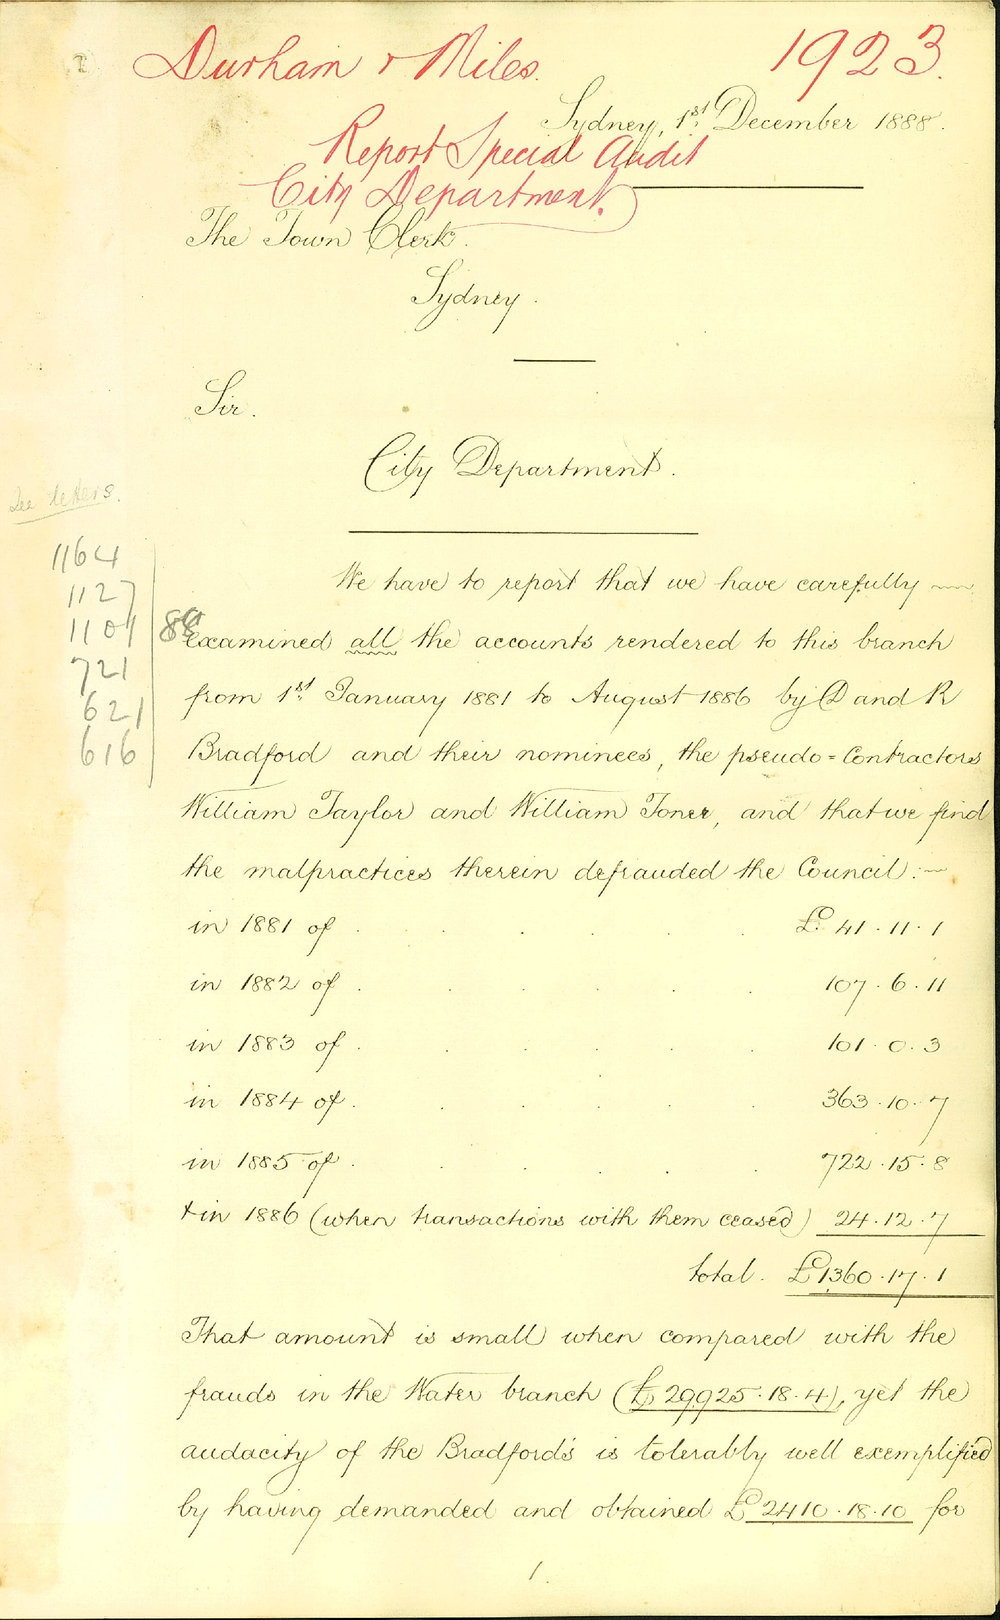 Durham & Miles. 1923.
Sydney, 1st December 1888.
Report Special Audit
City Department.
The Town Clerk.
Sydney.
Sir.
City Department.
See letters.
1164
1127
1101
721
621
616
88
We have to report that we have carefully
examined all the accounts rendered to this branch
from 1st January 1881 to August 1886 by D and R
Bradford and their nominees, the pseudo=Contractors
William Taylor and William Toner, and that we find
the malpractices therein defrauded the Council:—
in 1881 of . . . . . £41.11.1
in 1882 of . . . . . 107.6.11
in 1883 of . . . . . 101.0.3
in 1884 of . . . . . 363.10.7
in 1885 of . . . . . 722.15.8
& in 1886 (when transactions with them ceased) 24.12.7
total. £1360.17.1
That amount is small when compared with the
frauds in the Water branch (£29925.18.4), yet the
audacity of the Bradford's is tolerably well exemplified
by having demanded and obtained £2410.18.10 for
1.